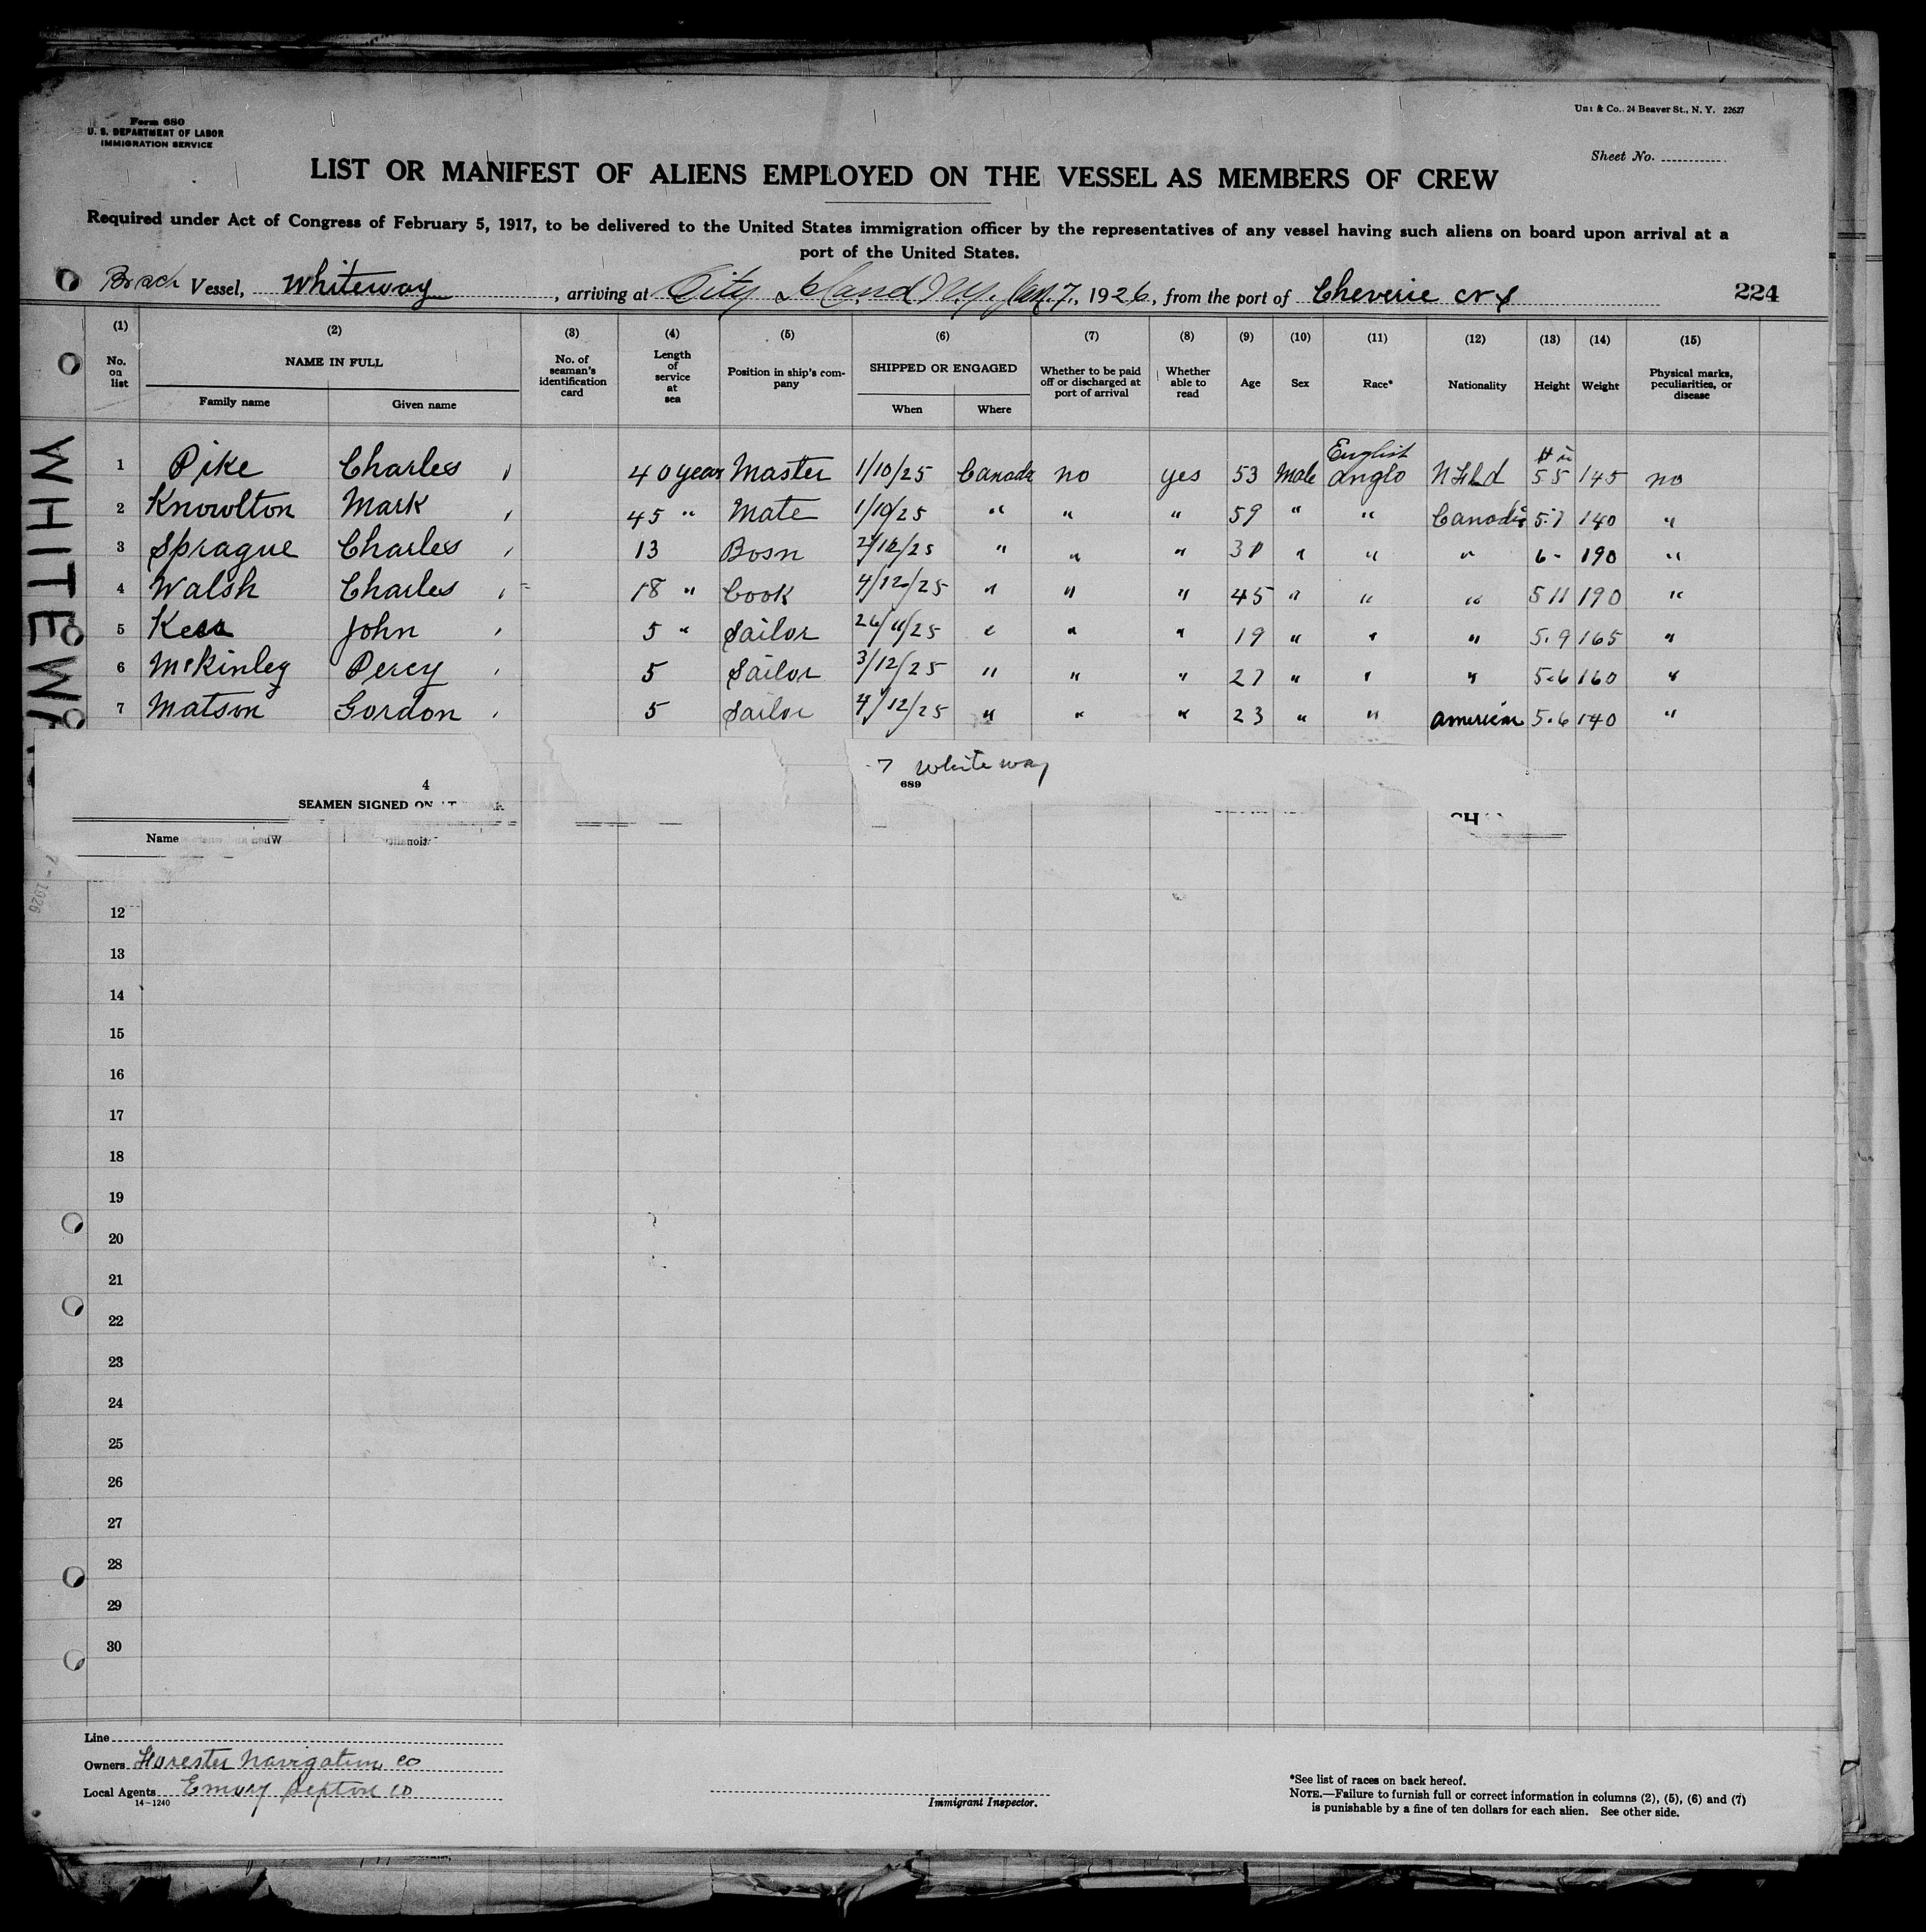 Form 680
U. S. DEPARTMENT OF LABOR
IMMIGRATION SERVICE
& Co., 24 Beaver St., N. Y. 22627
Sheet No.
LIST OR MANIFEST OF ALIENS EMPLOYED ON THE VESSEL AS MEMBERS OF CREW
Required under Act of Congress of February 5, 1917, to be delivered to the United States immigration officer by the representatives of any vessel having such aliens on board upon arrival at a
port of the United States.
Vessel, Whiteway, arriving at City Island N.Y. Jan. 7, 1926, from the port of Cheverie
224
(1) (2) (3) (4) (5) (6) (7) (8) (9) (10) (11) (12) (13) (14) (15)
No. on list NAME IN FULL Family name Given name No. of seaman's identification card Length of service at sea Position in ship's company SHIPPED OR ENGAGED When Where Whether to be paid off or discharged at port of arrival Whether able to read Age Sex Race* Nationality Height Weight Physical marks, peculiarities, or disease
WHITEWA
1 Pike Charles 40 years Master 1/10/25 Canada no yes 53 Male English anglo Nfld 5 5 145 no
2 Knowlton Mark 45 " Mate 1/10/25 " " " 59 " " Canadi 5.7 140 "
3 Sprague Charles 13 Bosn /25 " " " " " " 6- 190 "
4 Walsh Charles 18 " Cook 4/12/25 " " " 45 " " " 5 11 190 "
5 John 5 " Sailor 26/11/25 " " " 19 " " " 5.9 165 "
6 McKinley Percy 5 Sailor 3/12/25 " " " 27 " " " 5.6 160 "
7 Matson Gordon 5 Sailor 4/12/25 " " " 23 " " american 5.6 140 "
7 Whiteway
689
4
SEAMEN SIGNED ON
Name
1926
12
13
14
15
16
17
18
19
20
21
22
23
24
25
26
27
28
29
30
Line
Owners Navigation Co
Local Agents Co
14-1240
Immigrant Inspector.
*See list of races on back hereof.
NOTE.—Failure to furnish full or correct information in columns (2), (5), (6) and (7)
is punishable by a fine of ten dollars for each alien. See other side.